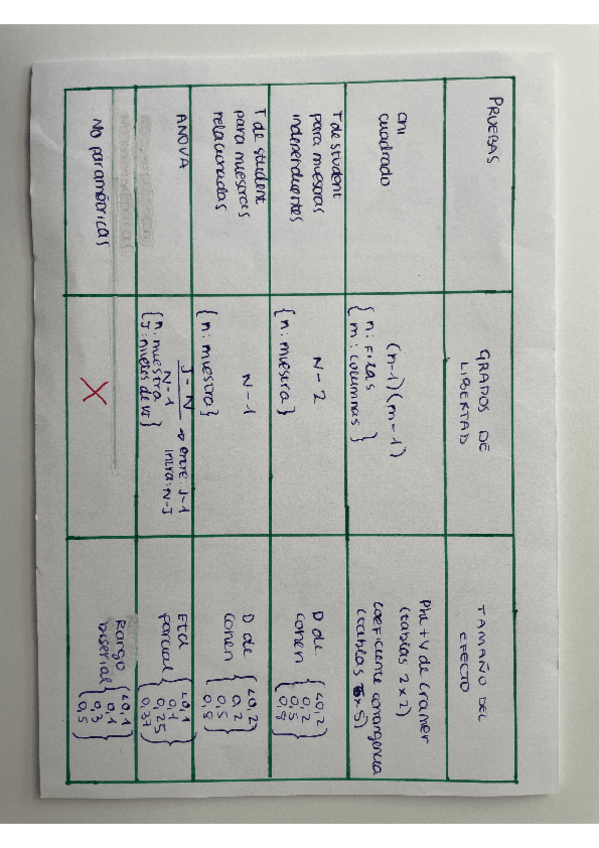 PRUEBAS
GRADOS DE
LIBERTAD
TAMAÑO DEL
EFECTO
chi
cuadrado
(n-1)(m-1)
{ n: Filas
m: columnas }
Phi + V de Cramer
(tablas 2x2)
Coeficiente convergencia
(tablas 5x5)
T de student
para muestras
independientes
N - 2
{ n: muestra }
D de
cohen
{ <0,2
0,2
0,5
0,8 }
T de student
para muestras
relacionadas
N - 1
{ n: muestra }
D de
cohen
{ <0,2
0,2
0,5
0,8 }
ANOVA
J - N
N - 1
→ entre: J-1
intra: N-J
{ n: muestra
J: niveles de VI }
Eta
parcial
{ <0,1
0,1
0,25
0,37 }
No paramétricas
X
Rango
biserial
{ <0,1
0,1
0,3
0,5 }